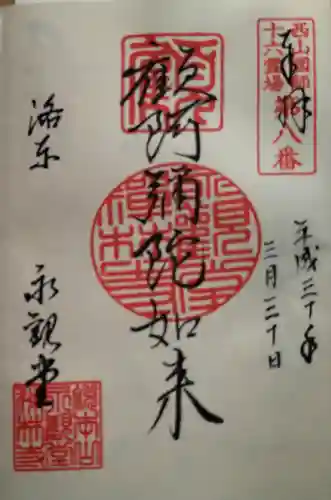 西山国師
十六霊場
第八番
奉拝
平成三十年
三月三十日
顧阿弥陀如来
洛東
永観堂